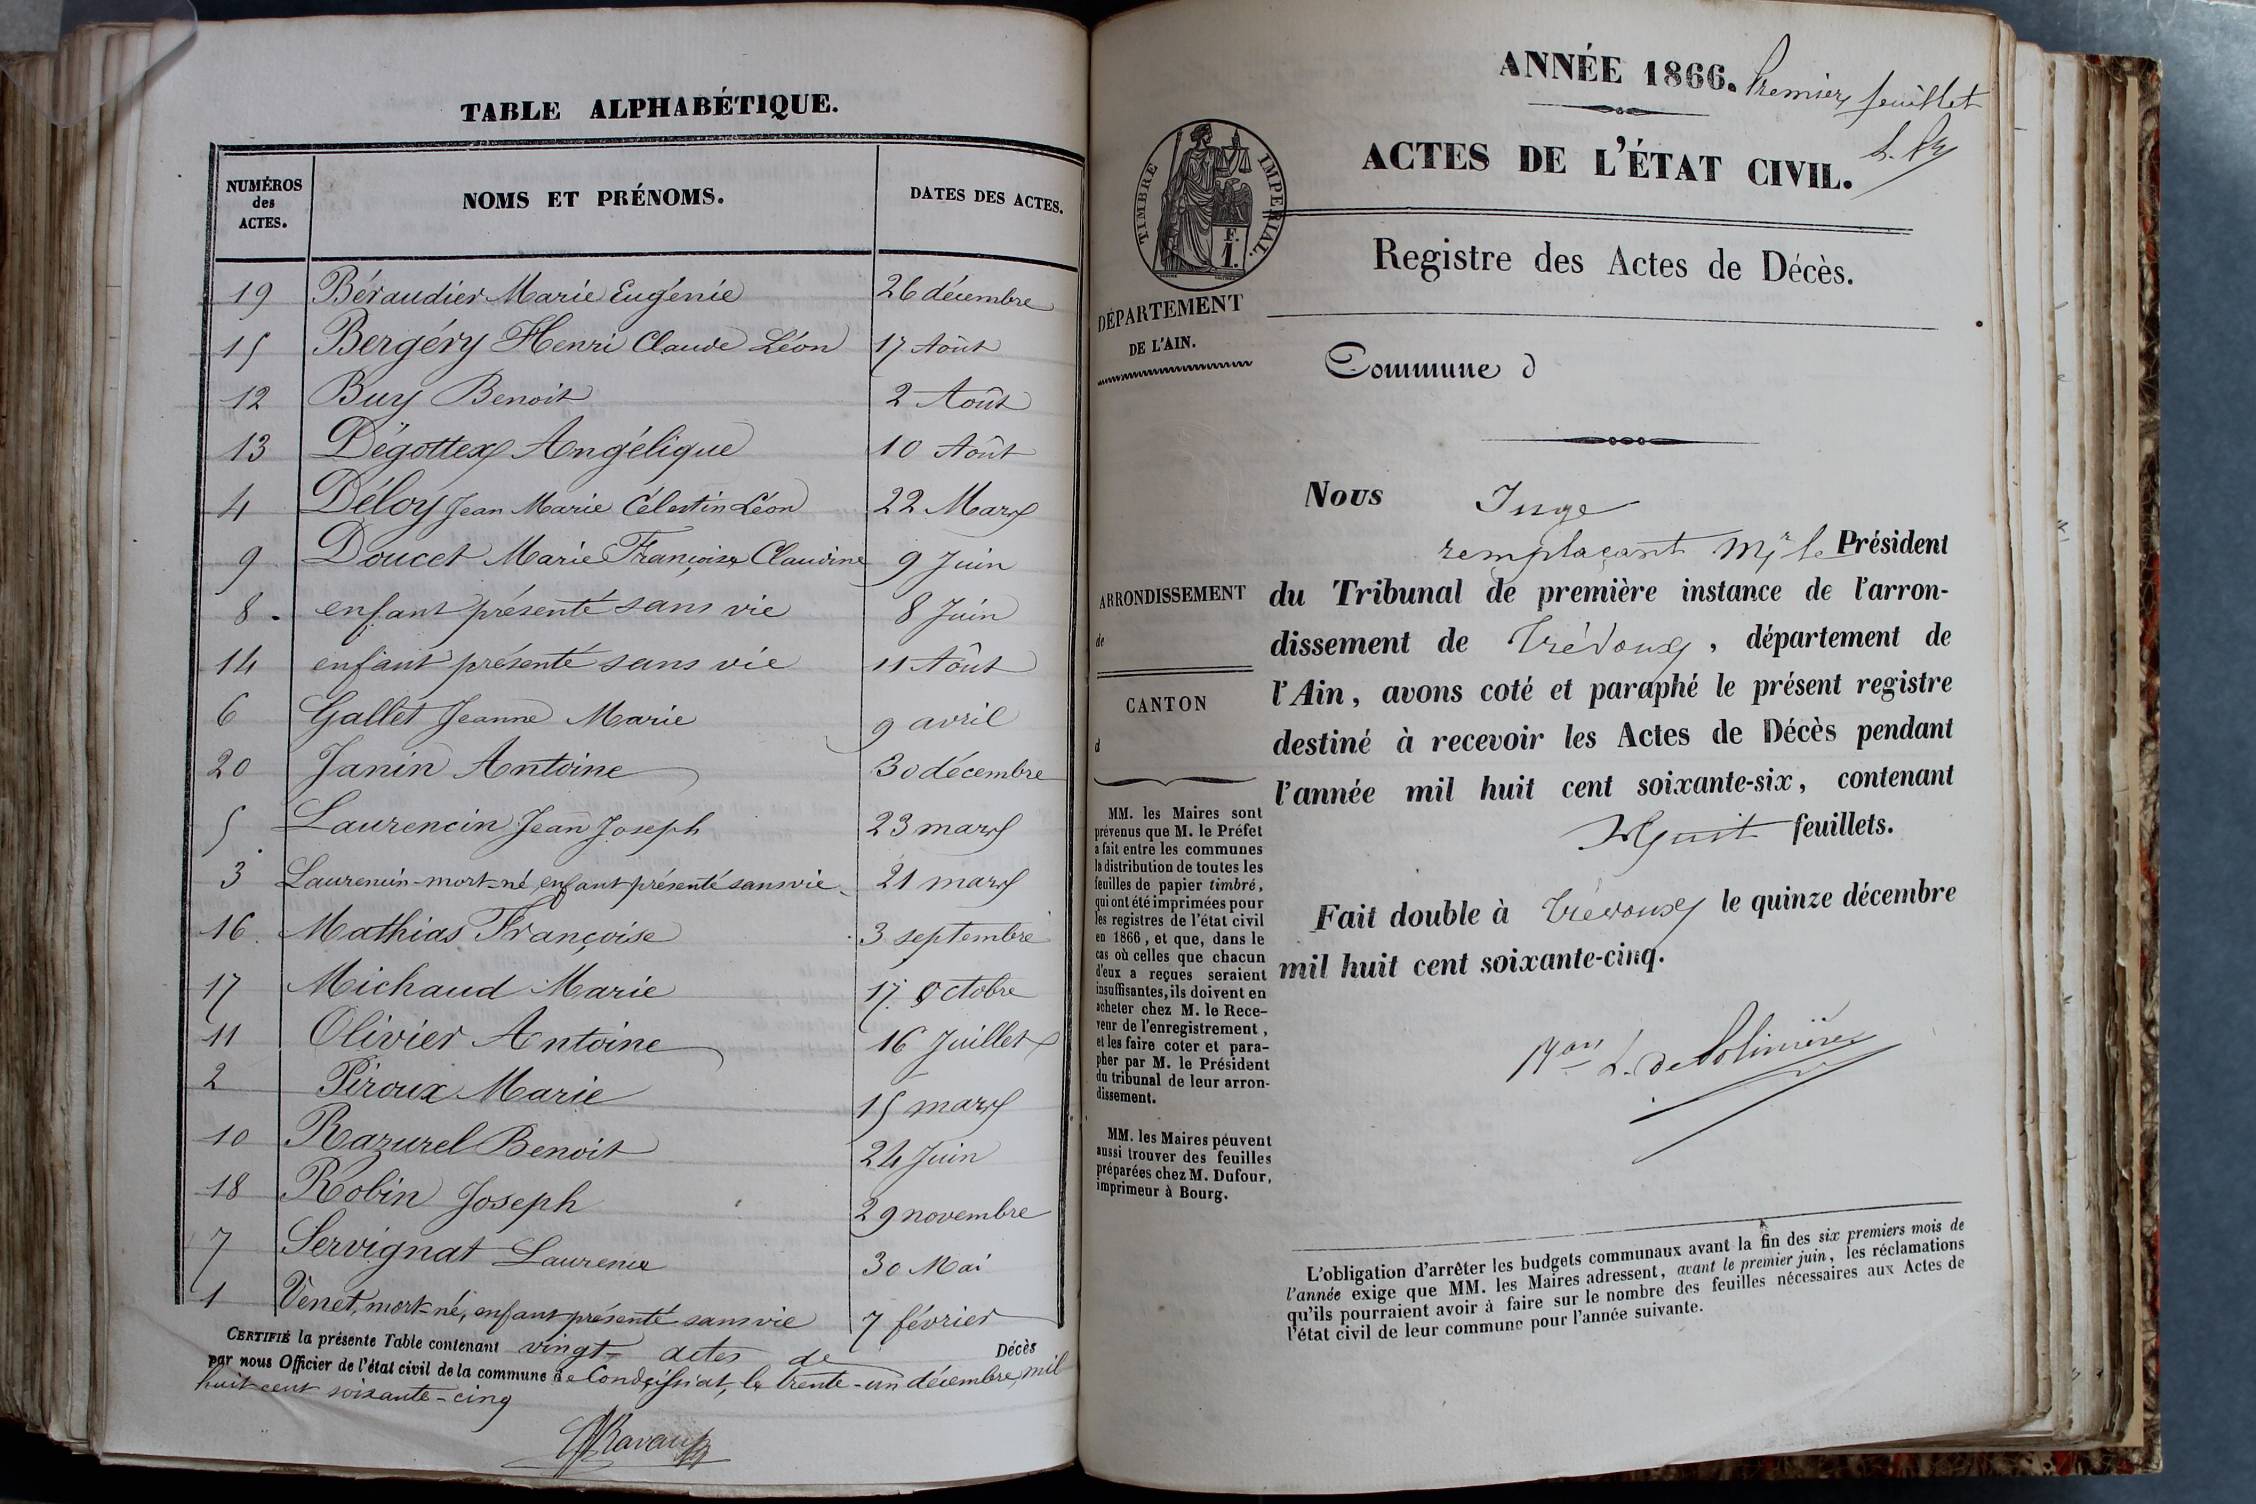 TABLE ALPHABÉTIQUE.
NUMÉROS des ACTES. NOMS ET PRÉNOMS. DATES DES ACTES.
19 Béraudier Marie Eugénie 26 décembre
15 Bergéry Henri Claude Léon 17 Août
12 Buy Benoit 2 Août
13 Dégottex Angélique 10 Août
4 Déloy Jean Marie Célestin Léon 22 Mars
9 Doucet Marie Françoise Claudine 9 Juin
8 enfant présenté sans vie 8 Juin
14 enfant présenté sans vie 11 Août
6 Gallet Jeanne Marie 9 avril
20 Janin Antoine 30 décembre
5 Laurencin Jean Joseph 23 mars
3 Laurencin mort-né, enfant présenté sans vie 21 mars
16 Mathias Françoise 3 septembre
17 Michaud Marie 17 Octobre
11 Olivier Antoine 16 Juillet
2 Piroux Marie 15 mars
10 Razurel Benoit 24 Juin
18 Robin Joseph 29 novembre
7 Servignat Laurence 30 Mai
1 Venet, mort-né, enfant présenté sans vie 7 février
CERTIFIÉ la présente Table contenant vingt actes de Décès
par nous Officier de l'état civil de la commune de Condeissiat, le trente-un décembre, mil
huit cent soixante-cinq
ANNÉE 1866. Premier feuillet
ACTES DE L'ÉTAT CIVIL.
TIMBRE IMPÉRIAL.
F.
1.
Registre des Actes de Décès.
DÉPARTEMENT
DE L'AIN.
Commune d
Nous Juge
remplaçant Mr le Président
ARRONDISSEMENT
de
CANTON
d
du Tribunal de première instance de l'arron-
dissement de Trévoux, département de
l'Ain, avons coté et paraphé le présent registre
destiné à recevoir les Actes de Décès pendant
l'année mil huit cent soixante-six, contenant
Huit feuillets.
Fait double à Trévoux le quinze décembre
mil huit cent soixante-cinq.
MM. les Maires sont
prévenus que M. le Préfet
a fait entre les communes
la distribution de toutes les
feuilles de papier timbré,
qui ont été imprimées pour
les registres de l'état civil
en 1866, et que, dans le
cas où celles que chacun
d'eux a reçues seraient
insuffisantes, ils doivent en
acheter chez M. le Rece-
veur de l'enregistrement,
et les faire coter et para-
pher par M. le Président
du tribunal de leur arron-
dissement.
MM. les Maires peuvent
aussi trouver des feuilles
préparées chez M. Dufour,
imprimeur à Bourg.
L'obligation d'arrêter les budgets communaux avant la fin des six premiers mois de
l'année exige que MM. les Maires adressent, avant le premier juin, les réclamations
qu'ils pourraient avoir à faire sur le nombre des feuilles nécessaires aux Actes de
l'état civil de leur commune pour l'année suivante.